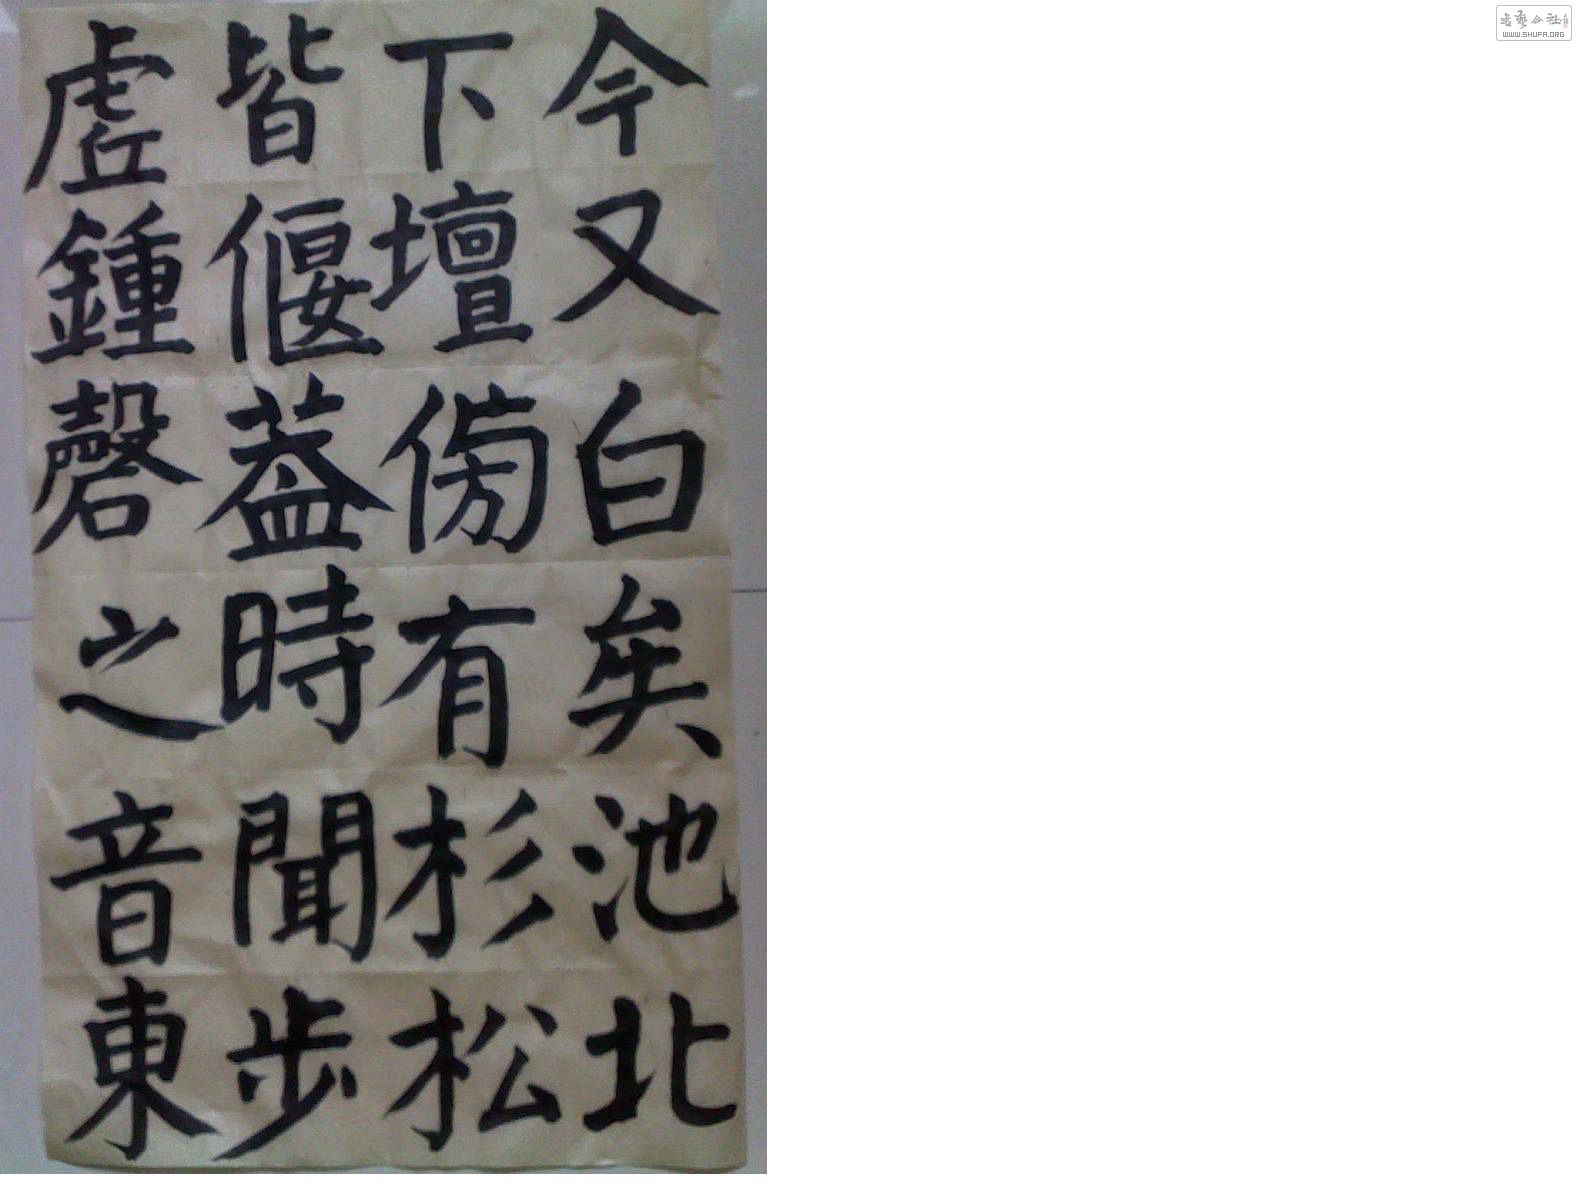 今又白矣池北
下壇傍有杉松
皆偃蓋時聞步
虛鍾磬之音東
WWW.SHUFA.ORG